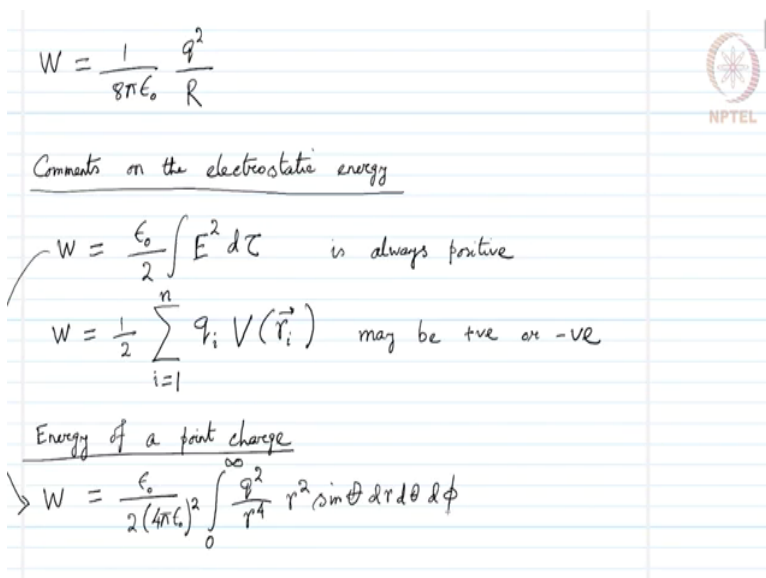 W = 1/(8πϵ₀) q²/R
NPTEL
Comments on the electrostatic energy
W = ϵ₀/2 ∫ E² dτ is always positive
W = 1/2 ∑_{i=1}^{n} qᵢ V(r⃗ᵢ) may be +ve or -ve
Energy of a point charge
W = ϵ₀/(2(4πϵ₀)²) ∫₀^∞ q²/r⁴ r² sinθ dr dθ dϕ